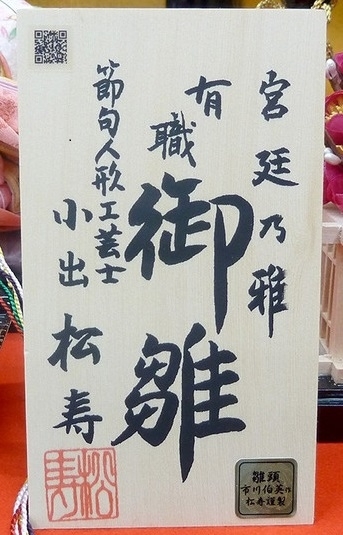 宮廷乃雅
有職
御雛
節句人形工芸士
小出松寿
松寿
雛頭
市川伯英作
松寿謹製